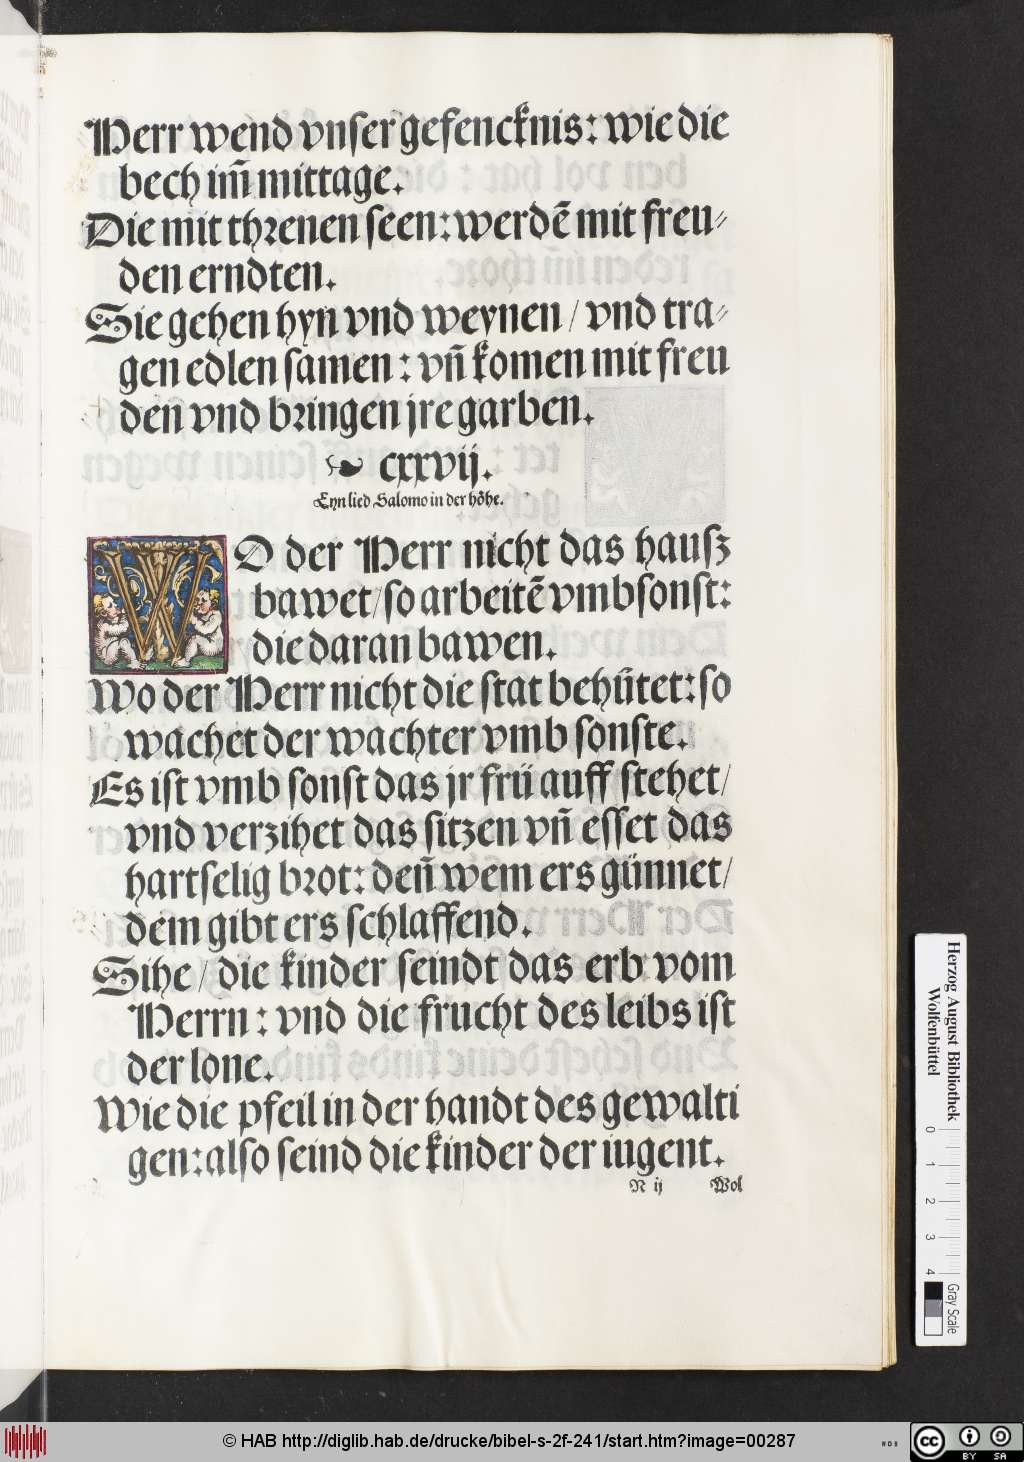 Herr wend vnser gefencknis: wie die
bech im̃ mittage.
Die mit threnen seen: werdẽ mit freu⸗
den erndten.
Sie gehen hyn vnd weynen / vnd tra⸗
gen edlen samen: vñ komen mit freu
den vnd bringen jre garben.
cxxvij.
Eyn lied Salomo in der höhe.
WO der Herr nicht das hausz
bawet/ so arbeitẽ vmbsonst:
die daran bawen.
Wo der Herr nicht die stat behütet: so
wachet der wachter vmb sonste.
Es ist vmb sonst das jr frü auff stehet/
vnd verzihet das sitzen vñ esset das
hartselig brot: deñ wem ers günnet/
dem gibt ers schlaffend.
Sihe / die kinder seindt das erb vom
Herrn: vnd die frucht des leibs ist
der lone.
Wie die pfeil in der handt des gewalti
gen: also seind die kinder der iugent.
N ij Wol
Herzog August Bibliothek
Wolfenbüttel
0 1 2 3 4
Gray Scale
© HAB http://diglib.hab.de/drucke/bibel-s-2f-241/start.htm?image=00287
WDB
cc BY SA